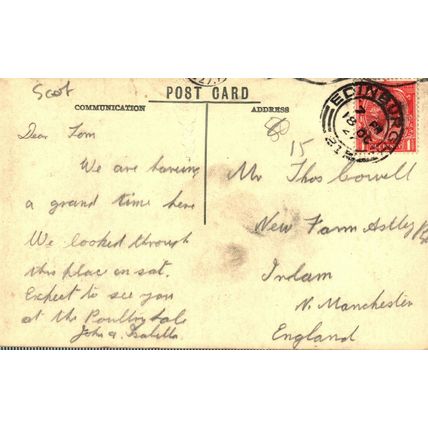 Scot
POST CARD
COMMUNICATION
ADDRESS
EDINBURGH
Dear Tom
We are having
a grand time here
We looked through
this place on sat.
Expect to see you
at the Poultry sale
John a. Isabella
15
Mr Thos Cowell
New Farm Astley
Irdam
N. Manchester
England